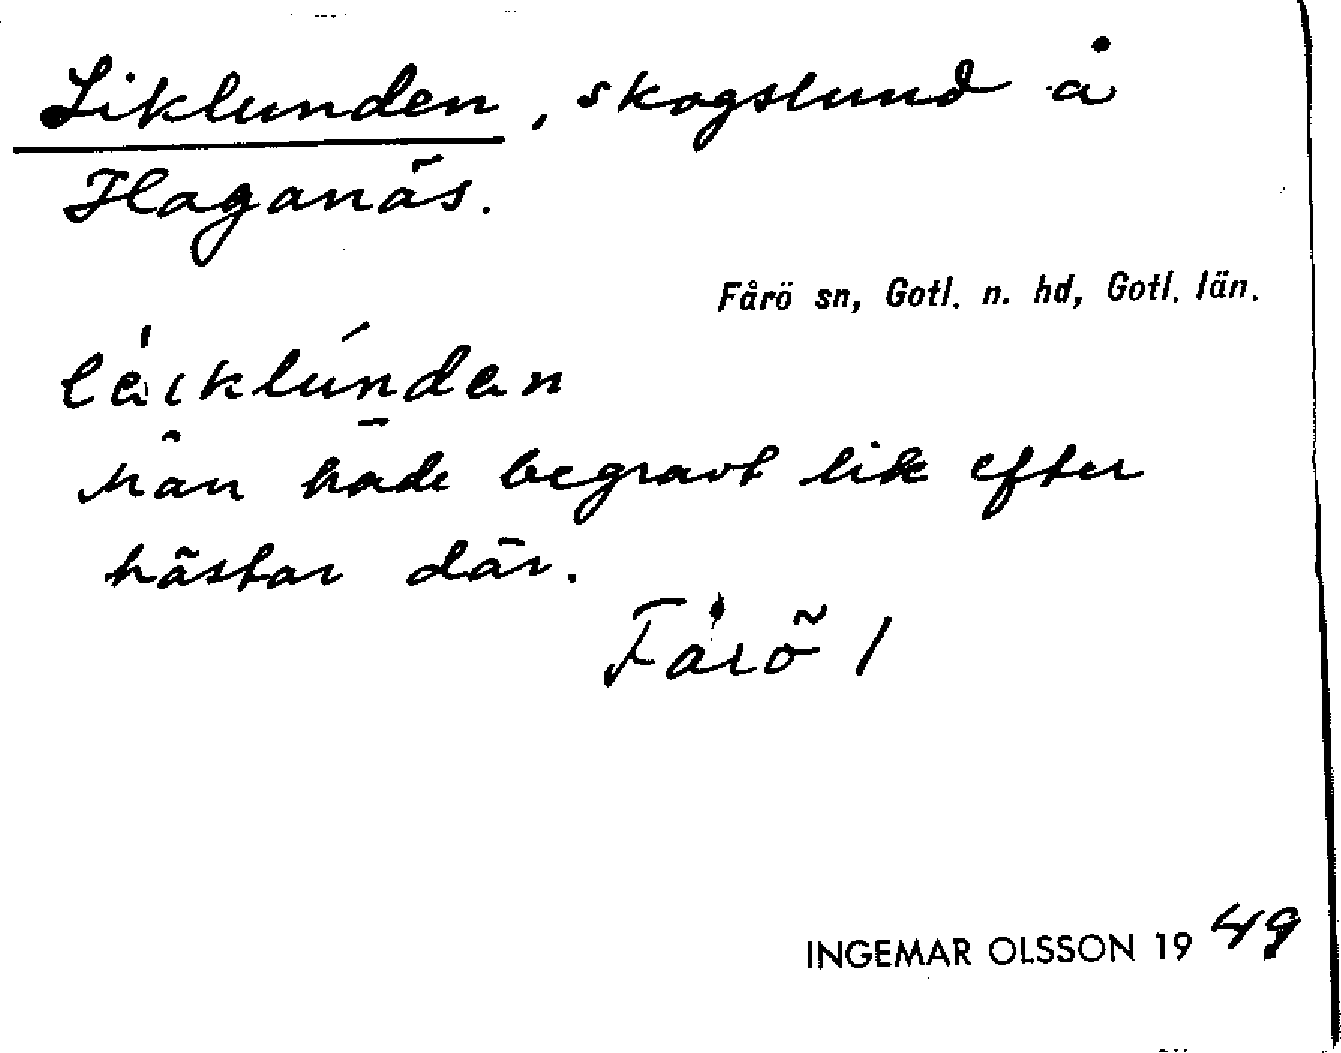 Liklunden, skogslund å
Haganäs.
Fårö sn, Gotl. n. hd, Gotl. län.
lèiklúndan
Man hade begravt lik efter
hästar där.
Fårö 1
INGEMAR OLSSON 1949